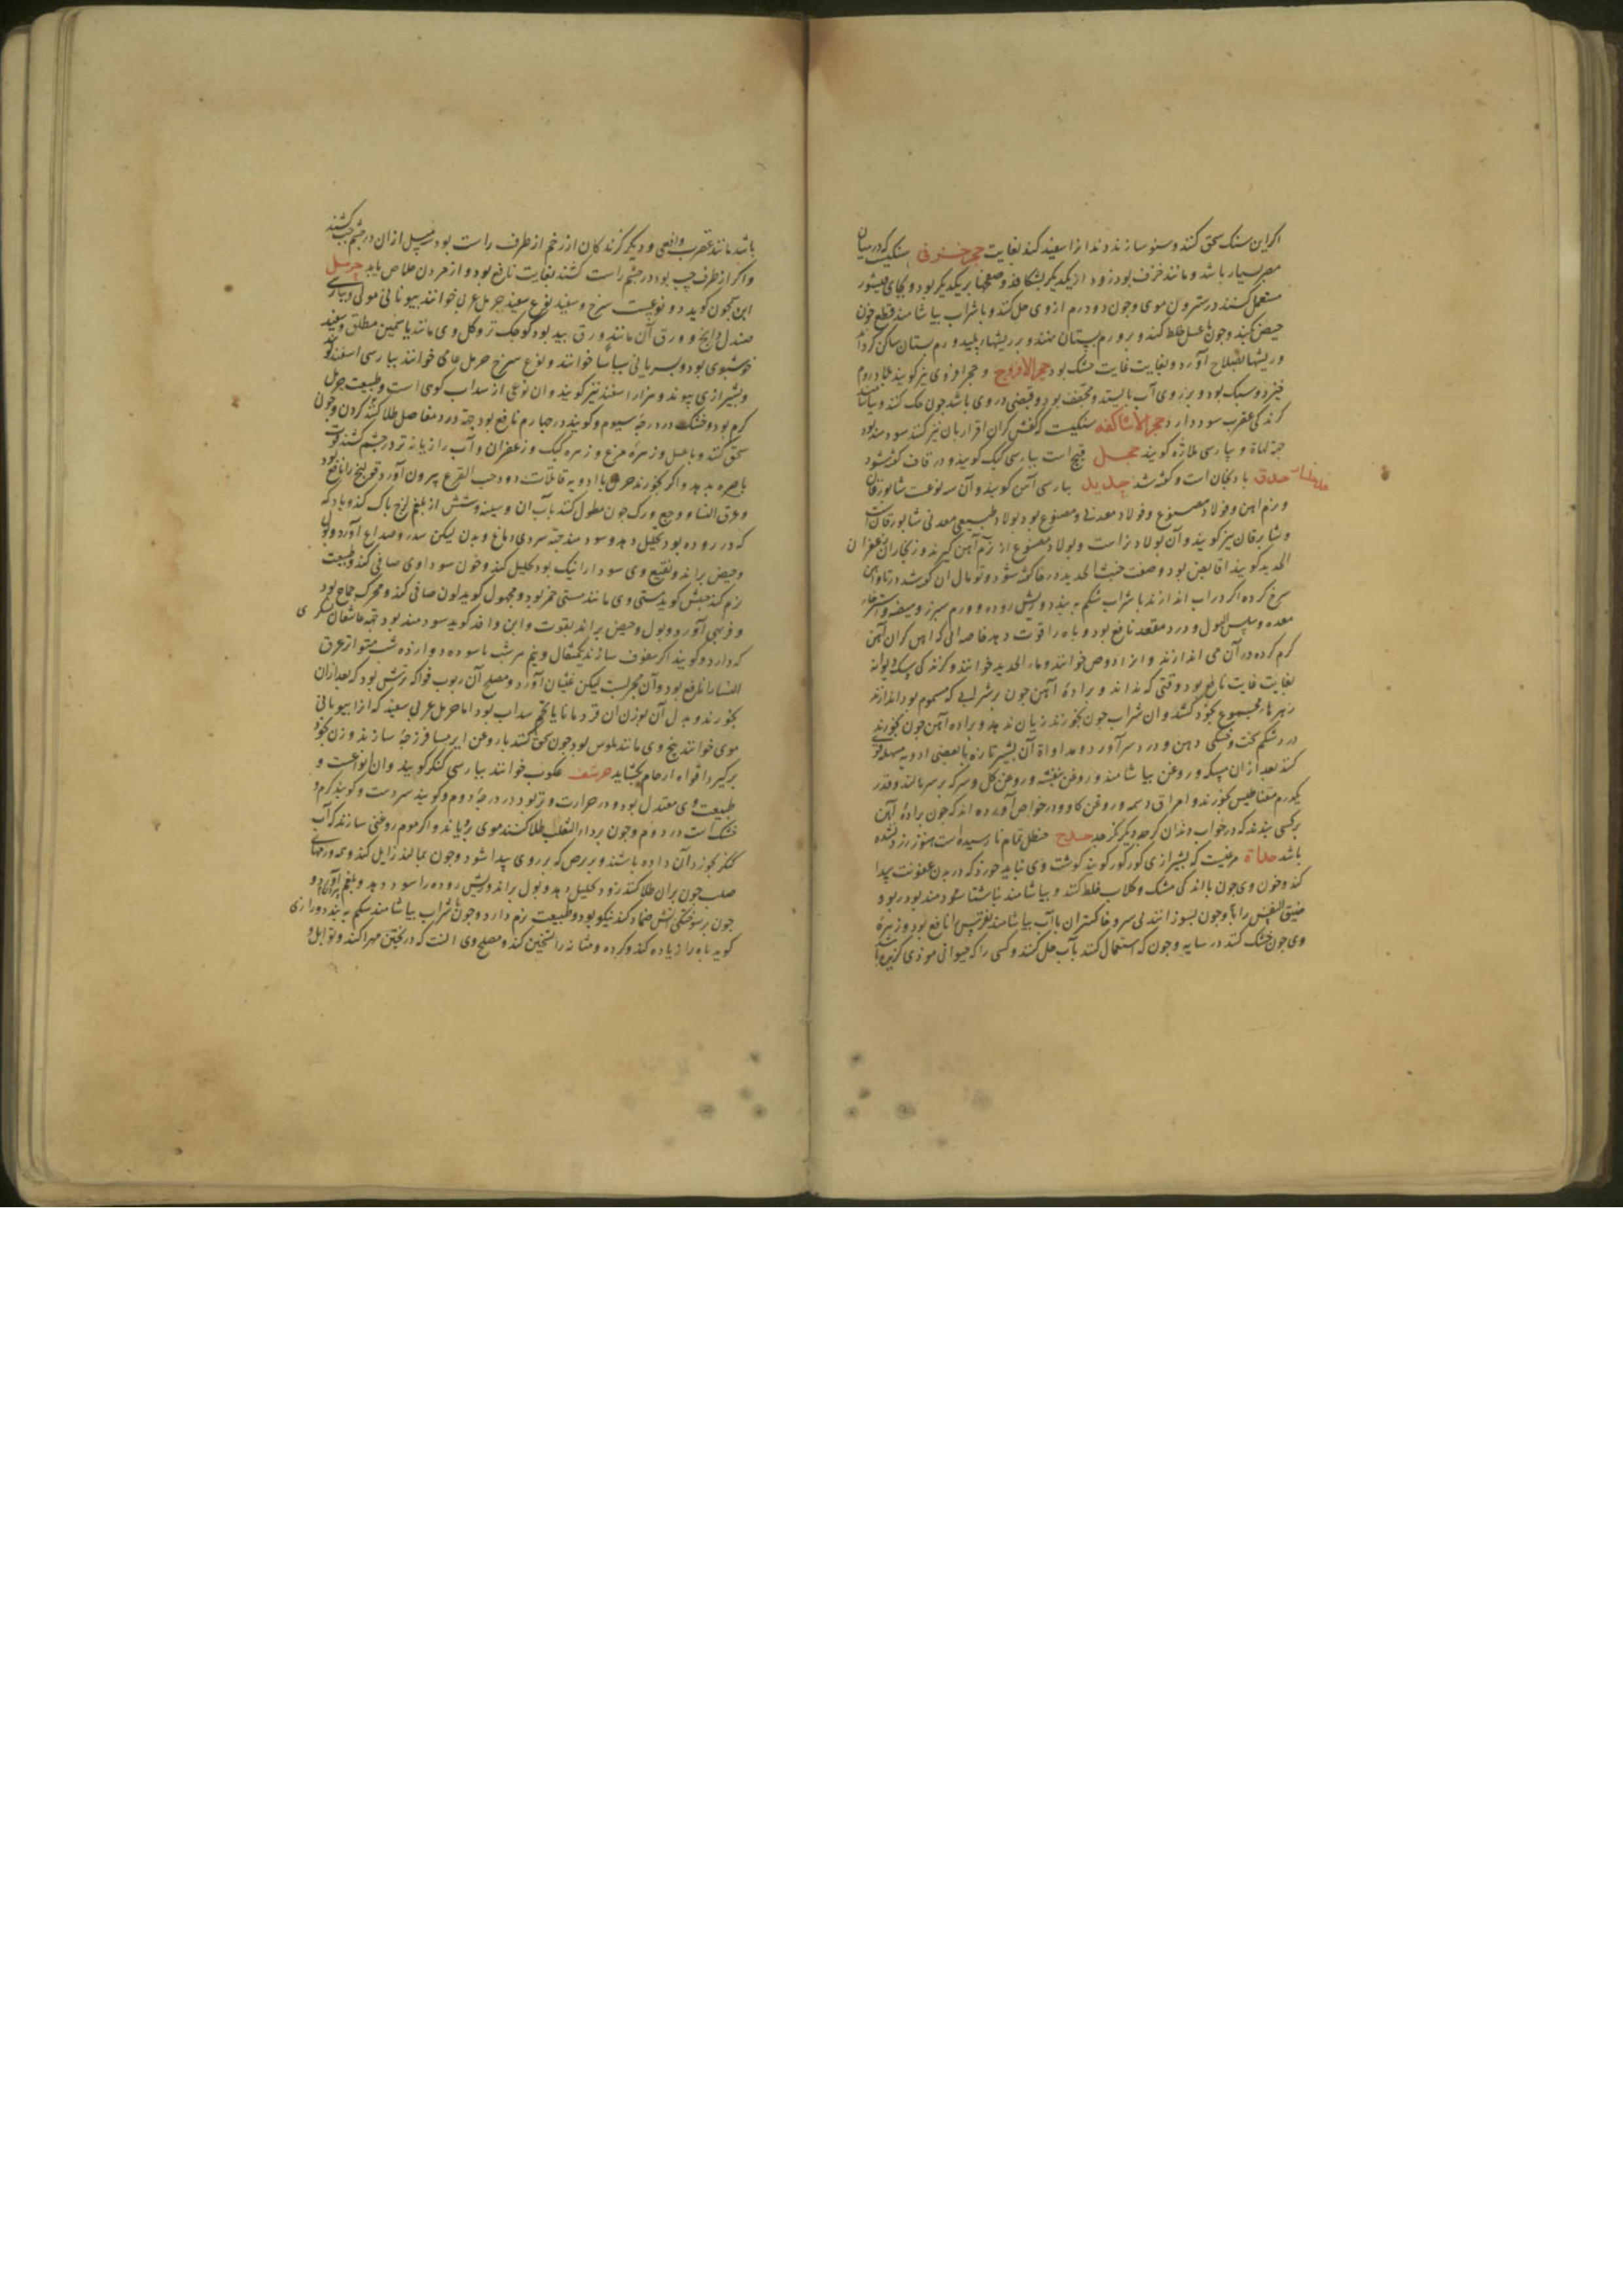 اکر این سنک سحق کنند و سنون سازند دندانرا سفید کند بغایت حجر خزفی سنکیست که در میان
مصر بسیار باشد و مانند خزف بود زود از یکدیکر بشکافد و صفحها بر یکدیکر بود و بجای قیشور
مستعمل کنند در ستردن موی و چون دو درم از وی حل کنند و با شراب بیاشامند قطع خون
حیض بکند و چون با عسل خلط کنند و بر ورم پستان نهند و بر ریشهاء پلید ورم پستان ساکن کرداند
و ریشها بصلاح آورد و بغایت غایت خشک بود حجر الافروج و حجر افروی نیز کویند بلاد روم
خیزد و سبک بود و بر روی آب بایستد و مجفف بود و قبضی در وی باشد چون حک کنند
کزندکی عقرب سود دارد حجر الاساکفه سنکیست که کفش کران
جهة لهاة و بپارسی ملازه کویند حجل قبج است بپارسی کبک کویند و در قاف کفته شود
حدق بادنجان است و کفته شد حدید بپارسی آهن کویند و آن سه نوعست شابورقان
و نرم آهن و فولاد مصنوع و فولاد معدنی و مصنوع بود پولاد طبیعی معدنی شابورقان است
و شابرقان نیز کویند و آن پولاد نراست و پولاد مصنوع از نرم آهن کیرند و زنکار آن زعفران
الحدید کویند قابض بود و صفت خبث الحدید در خا کفته شود و توبال آن کفته شد در تا و آهن
سرخ کرده اکر در آب اندازند یا شراب شکم ببندد و ریش روده و ورم سپرز و هیضه و استرخاء
معده و سلس البول و درد مقعد نافع بود و باه را قوت دهد خاصه آبی که آهن کران آهن
کرم کرده در آن می اندازند و ماء الحدید خوانند و کزندکی سک دیوانه
بغایت غایت نافع بود وقتی که نداند و برادهٔ آهن چون بر شرابی که مسموم بود اندازند
زهرها مجموع بخود کشد و آن شراب چون بخورند زیان ندهد و براده آهن چون بخورند
درد شکم سخت و خشکی دهن و درد سر آورد و مداواة آن بشیر تازه با بعضی ادویه مسهله قوی
کنند بعد از ان مسکه و روغن بیاشامند و روغن بنفشه و روغن کل و سرکه بر سر مالند و قدر
یکدرم مغناطیس بخورند و امراق دسمه و روغن کاو و در خواص آورده اند که چون برادهٔ آهن
بر کسی بندند که در خواب دندان بر هم نزند حدج حنظل تمام نارسیده است هنوز زرد نشده
باشد حدأة مرغیست که بشیرازی کورکور کویند کوشت وی نباید خورد که در بدن عفونت پیدا
کند و خون وی چون با اندکی مشک و کلاب خلط کنند و بیاشامند ناشتا سودمند بود ربو و
ضیق النفس را و چون بسوزانند بی سر و خاکستر آن با آب بیاشامند نقرس را نافع بود و زهرهٔ
وی چون خشک کنند در سایه و چون که استعمال کنند بآب حل کنند و کسی را که حیوانی موذی کزیده
باشد مانند عقرب و افعی و دیکر کزندکان از زخم از طرف راست بود سه میل از ان در چشم چپ کشند
و اکر از طرف چپ بود در چشم راست کشند بغایت نافع بود و از مردن خلاص یابد حرمل
ابن سمجون کوید دو نوعست سرخ و سفید نوع سفید حرمل عربی خوانند بیونانی مولی و بپارسی
صندل دایخ و ورق آن مانند ورق بید بود کوچک تر و کل وی مانند یاسمین مطلق و سفید
خوشبوی بود و بسریانی بساسا خوانند و نوع سرخ حرمل عامی خوانند بپارسی اسفند کویند
و بشیرازی پیوند و هزار اسفند نیز کویند و آن نوعی از سداب کوهی است و طبیعت حرمل
کرم بود و خشک در درجهٔ سیوم و کویند در چهارم نافع بود جهة درد مفاصل طلا کردن و چون
سحق کنند و با عسل و زهرهٔ مرغ و زهره کبک و زعفران و آب رازیانه تر در چشم کشند قوت
باصره بدهد و اکر بخورند حرمل با ادویه قاتلات دود حب القرع بیرون آورد قولنج را نافع بود
و عرق النسا و وجع ورک چون نطول کنند بآب آن و سینه و شش از بلغم لزج پاک کند و بادکه
که در روده بود تحلیل دهد و سودمند جهة سردی دماغ و بدن لیکن سدر و صداع آورد و بول
و حیض براند و نقیع وی سودا را نیک بود تحلیل کند و خون سوداوی صافی کند و طبیعت
نرم کند حبیش کوید مستی وی مانند مستی خمر بود و مجهول کوید لون صافی کند و محرک جماع بود
و فربهی آورد و بول و حیض براند بقوت و ابن وافد کوید سودمند بود جهة عاشقان سکری
که دارد و کویند اکر سفوف سازند یکمثقال و نیم هر شب ناسوده دوازده شب متواتر عرق
النسا را نافع بود و آن مجربست لیکن غثیان آورد و مصلح آن ربوب فواکه ترش بود که بعد از ان
بخورند و بدل آن بوزن آن قردمانا یا تخم سداب بود اما حرمل عربی سفید که انرا بیونانی
مولی خوانند بیخ وی مانند بلبوس بود چون سحق کنند با روغن ایرسا فرزجهٔ سازند و زن بخود
برکیرد افواه ارحام بکشاید حرشف عکوب خوانند بپارسی کنکر کویند و آن انواعست و
طبیعت وی معتدل بود در حرارت و تر بود در درجهٔ دوم و کویند سردست و کویند کرم و
خشکست در دوم و چون برداء الثعلب طلا کنند موی برویاند و اکر موم روغنی سازند که آب
کنکر بخورد آن داده باشند و بر برص که بر روی پیدا شود و چون بمالند زایل کند و همه ورمهای
صلب چون بران طلا کنند زود تحلیل دهد و بول براند و ریش روده را سود دهد و بلغم
چون بر سوختکی آتش ضماد کنند نیکو بود و طبیعت نرم دارد و چون با شراب بیاشامند شکم ببندد و رازی
کوید باه را زیاده کند و کرده و مثانه را تسخین کند و مصلح وی آنست که در پختن مهرا کنند و توابل و